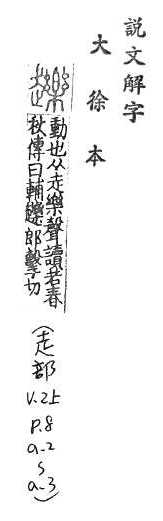 說文解字
大徐本
動也从走樂聲讀若春
秋傳曰輔䟏郎擊切
(走部
V.2上
P.8
a-2
s
a-3)